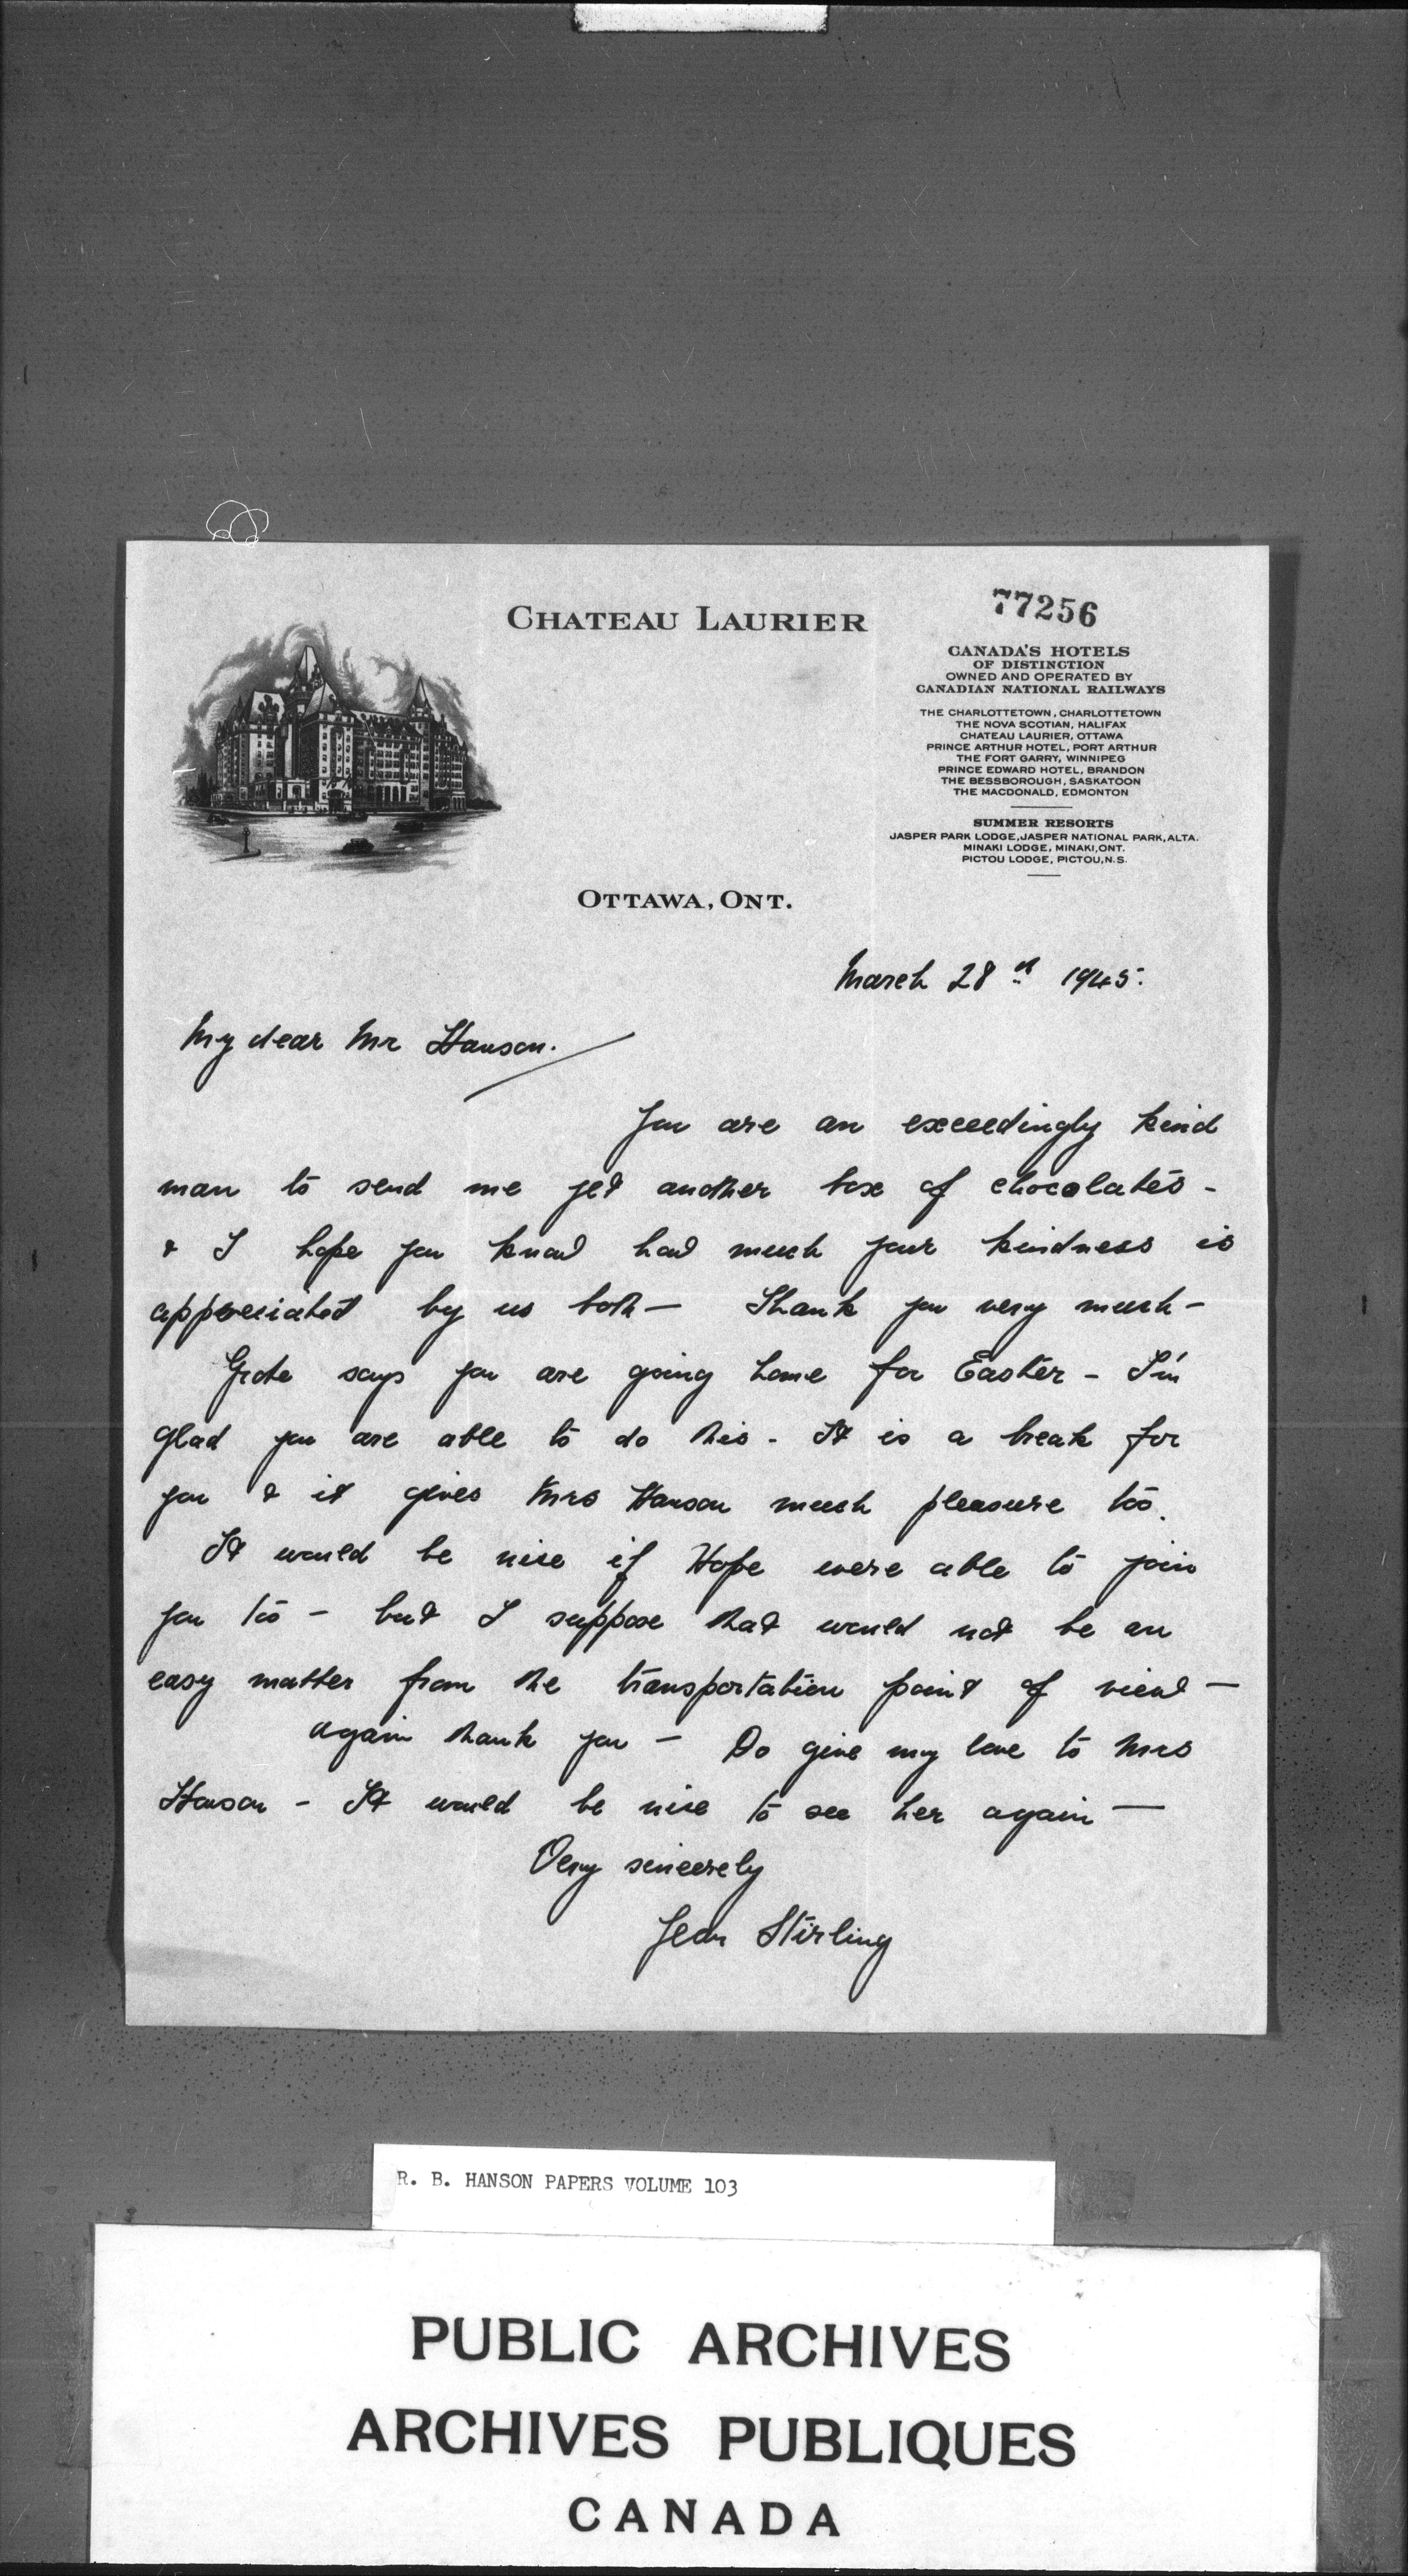 CHATEAU LAURIER
77256
CANADA'S HOTELS
OF DISTINCTION
OWNED AND OPERATED BY
CANADIAN NATIONAL RAILWAYS
THE CHARLOTTETOWN, CHARLOTTETOWN
THE NOVA SCOTIAN, HALIFAX
CHATEAU LAURIER, OTTAWA
PRINCE ARTHUR HOTEL, PORT ARTHUR
THE FORT GARRY, WINNIPEG
PRINCE EDWARD HOTEL, BRANDON
THE BESSBOROUGH, SASKATOON
THE MACDONALD, EDMONTON
SUMMER RESORTS
JASPER PARK LODGE, JASPER NATIONAL PARK, ALTA.
MINAKI LODGE, MINAKI, ONT.
PICTOU LODGE, PICTOU, N.S.
OTTAWA, ONT.
March 28th 1945.
My dear Mr Hanson.
You are an exceedingly kind
man to send me yet another box of chocolates -
& I hope you know how much your kindness is
appreciated by us both — Thank you very much -
Grote says you are going home for Easter - I'm
glad you are able to do this - It is a break for
you & it gives Mrs Hanson much pleasure too.
It would be nice if Hope were able to join
you too - but I suppose that would not be an
easy matter from the transportation point of view —
again thank you - Do give my love to Mrs
Hanson - It would be nice to see her again —
Very sincerely
Jean Stirling
R. B. HANSON PAPERS VOLUME 103
PUBLIC ARCHIVES
ARCHIVES PUBLIQUES
CANADA